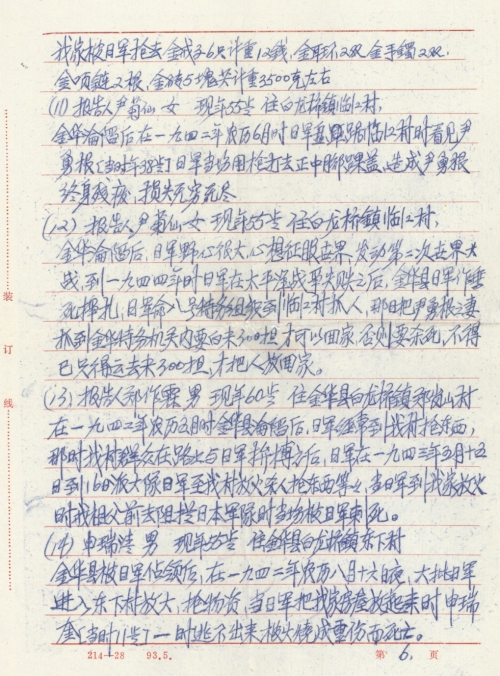 我家被日军抢去金戒子6只计重12钱，金耳环2双 金手镯2双，
金项链2根，金砖5塊共计重3500克左右
(11) 报告人 尹菊仙 女 现年55岁 住白龙桥镇临江村，
金华沦陷后在一九四二年农历6月时日军路临江村时看见尹
勇根[当时年38岁]日军当场用枪打去正中脚踝盖，造成尹勇根
终身残疾，损失无穷无尽
(12) 报告人 尹菊仙 女 现年55岁 住白龙桥镇临江村，
金华沦陷后，日军野心很大，心想征服世界，发动第二次世界大
战，到一九四四年时日军在太平洋战争失败之后，金华县日军作垂
死挣扎，日军命八号特务组织到临江村抓人，那日把尹勇根之妻
抓到金华特务机关内要白米300担，才可以回家，否则要杀死，不得
已只得云去米300担，才把人放回家。
(13) 报告人 郑作霖 男 现年60岁 住金华县白龙桥镇郑岗山村
在一九四二年农历五月时金华县沦陷后，日军经常到我村抢东西，
那时我村群众在路上与日军拚搏之后，日军在一九四三年五月十五
日到16日派大队日军至我村放火杀人抢东西等等，当日军到我家放火
时我祖父前去阻拦日本军队时当场被日军刺死。
(14) 申瑞浩 男 现年55岁 住金华县白龙桥镇东下村
金华县被日军占领后，在一九四二年农历八月十六日夜，大批日军
进入东下村放火，抢物资，当日军把我家房屋放起来时申瑞
奎[当时11岁]一时逃不出来，被火烧成重伤而死亡。
装
订
线
214—28 93.5. 第 6. 页